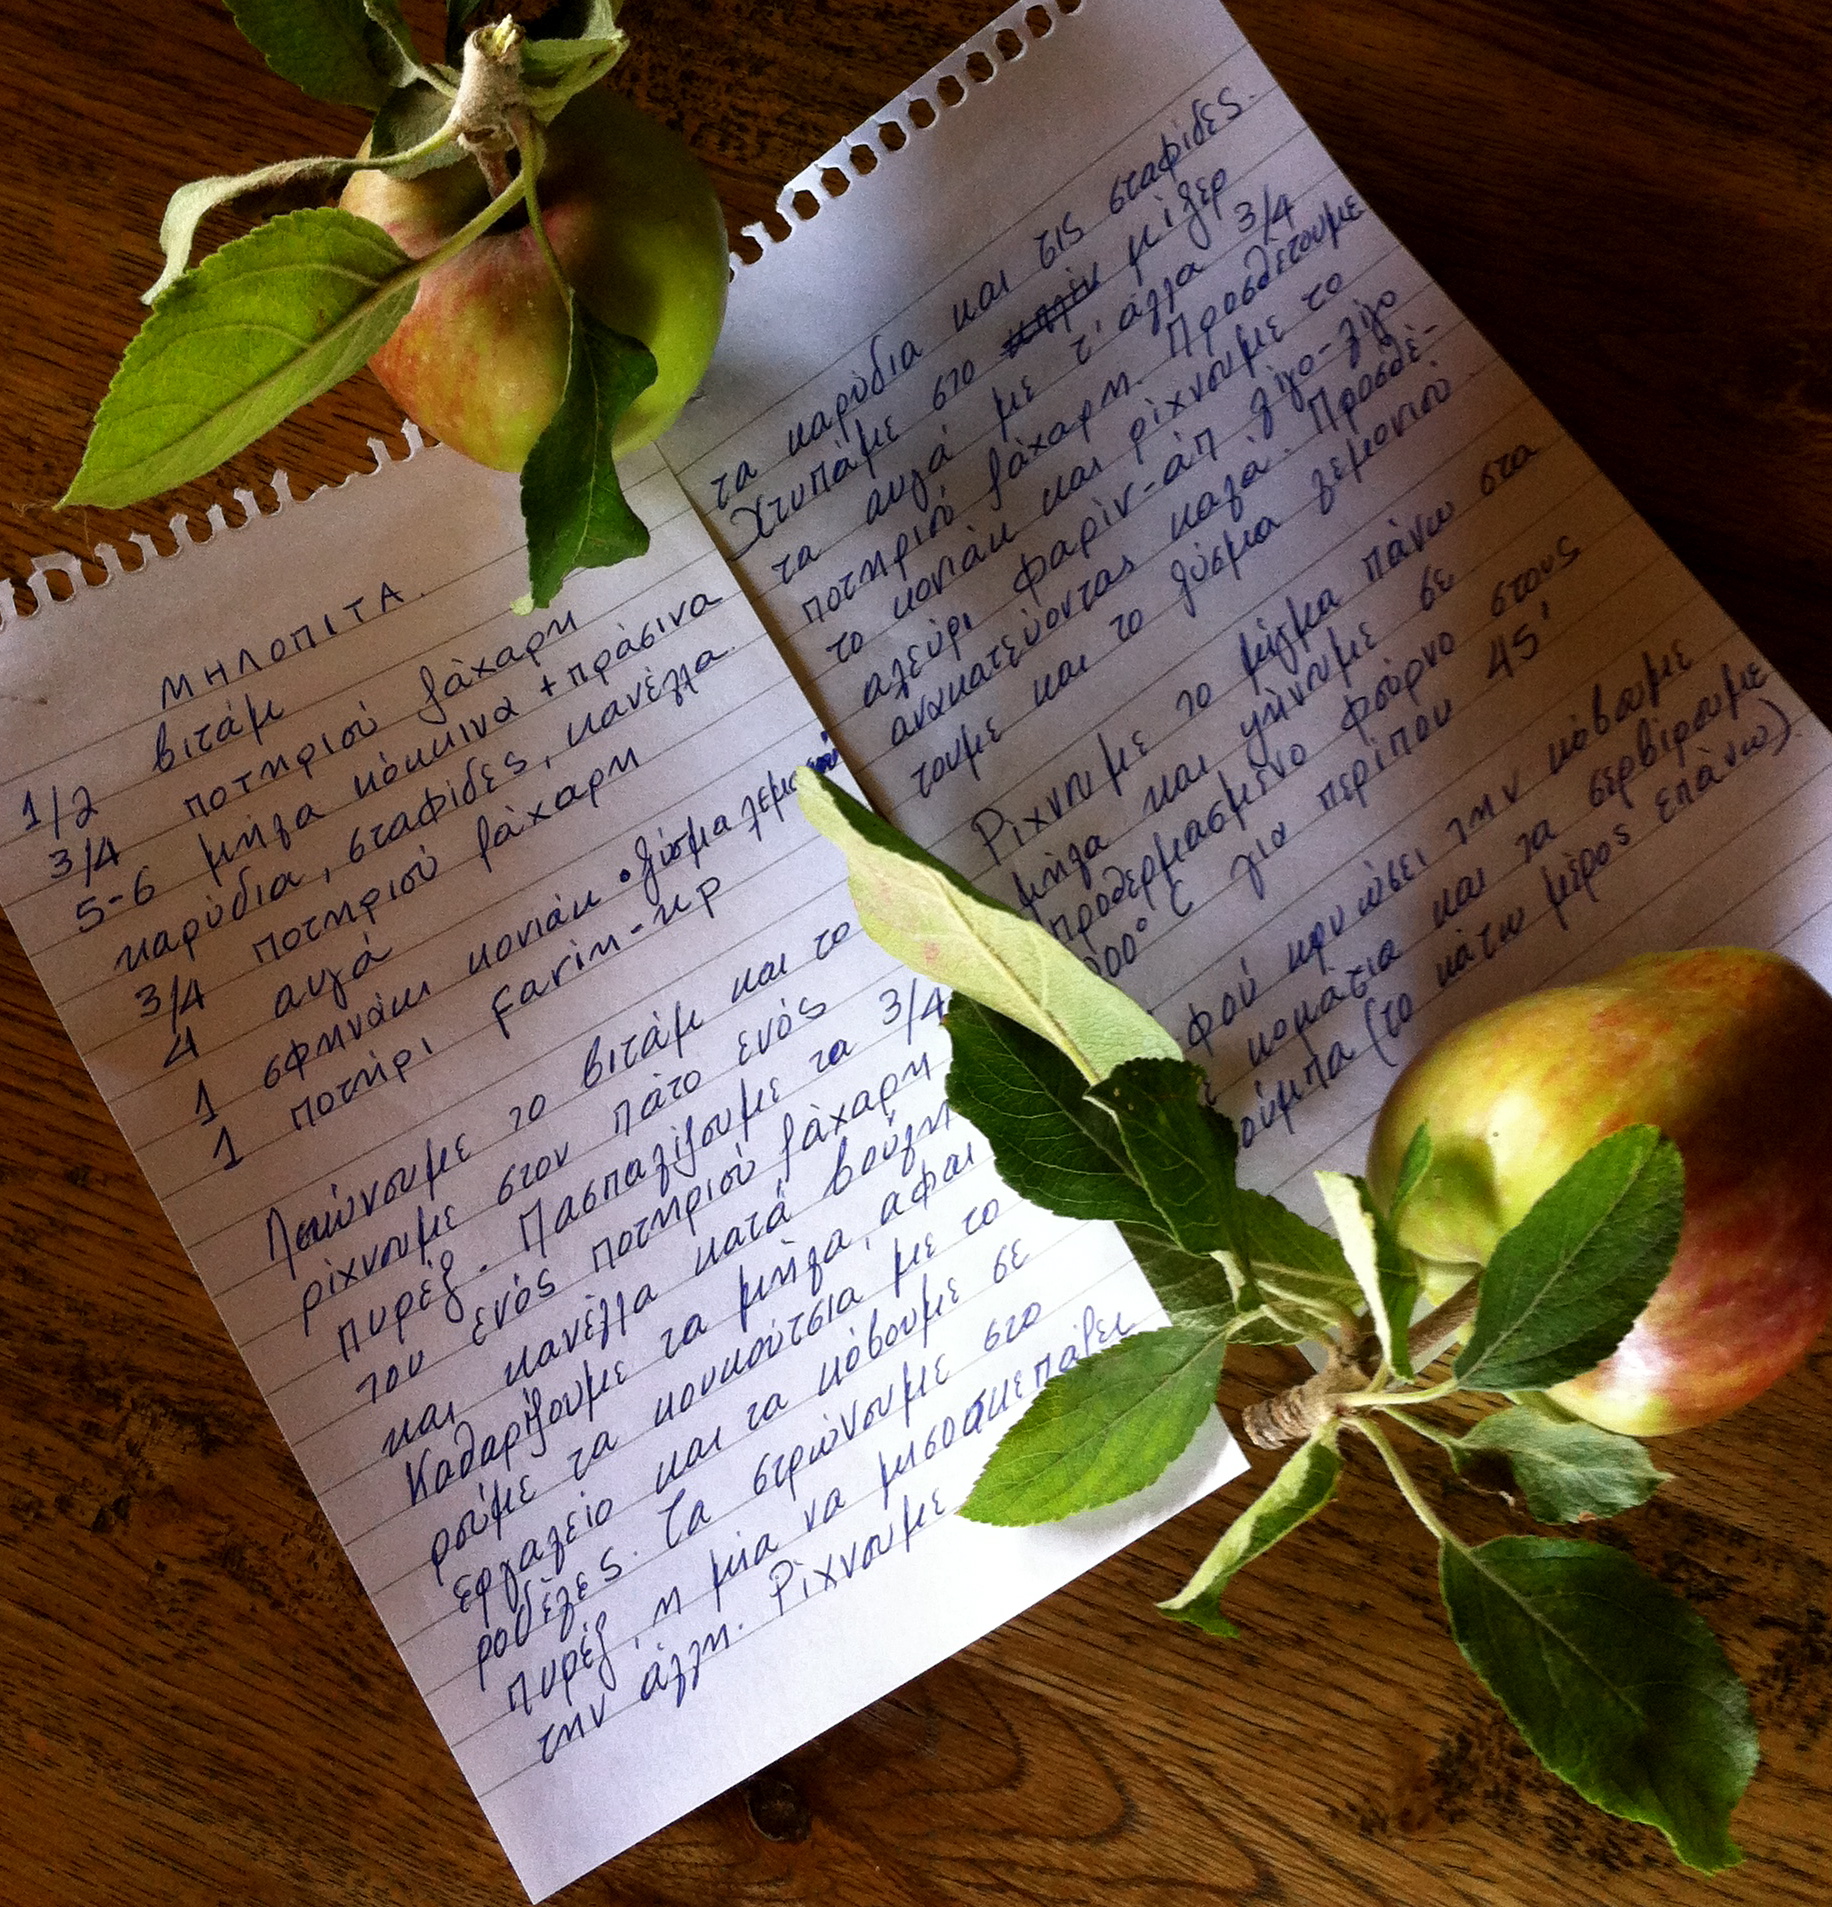 ΜΗΛΟΠΙΤΑ.
1/2 βιτάμ
3/4 ποτηριού ζάχαρη
5-6 μήλα κόκκινα + πράσινα
καρύδια, σταφίδες, κανέλλα.
3/4 ποτηριού ζάχαρη
4 αυγά
1 σφηνάκι κονιάκ • ξύσμα λεμονιού
1 ποτήρι farin-απ
Λειώνουμε το βιτάμ και το
ρίχνουμε στον πάτο ενός
πυρέξ. Πασπαλίζουμε τα 3/4
του ενός ποτηριού ζάχαρη
και κανέλλα κατά βούλη
Καθαρίζουμε τα μήλα, αφαι
ρούμε τα κουκούτσια με το
εργαλείο και τα κόβουμε σε
ροδέλες. Τα στρώνουμε στο
πυρέξ, η μία να μισοσκεπάζει
την άλλη. Ρίχνουμε
τα καρύδια και τις σταφίδες.
Χτυπάμε στο μίξερ
τα αυγά με τ' άλλα 3/4
ποτηριού ζάχαρη. Προσθέτουμε
το κονιάκ και ρίχνουμε το
αλεύρι φαρίν-άπ λίγο-λίγο
ανακατεύοντας καλά. Προσθέ-
τουμε και το ξύσμα λεμονιού.
Ρίχνουμε το μίγμα πάνω στα
μήλα και ψήνουμε σε
προθερμασμένο φούρνο στους
00° C για περίπου 45'
φού κρυώσει την κόβουμε
ε κομάτια και τα σερβίρουμε
ούμπα (το κάτω μέρος επάνω).